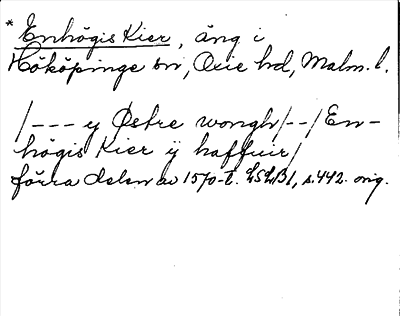 * Enhögis Kier, äng i
Hököpinge sn, Oxie hd, Malm. l.
/--- y Østre wongh/--/En-
högis Kier ÿ haffuir/
förra delen av 1570-t. LSLB1, s. 442. orig.